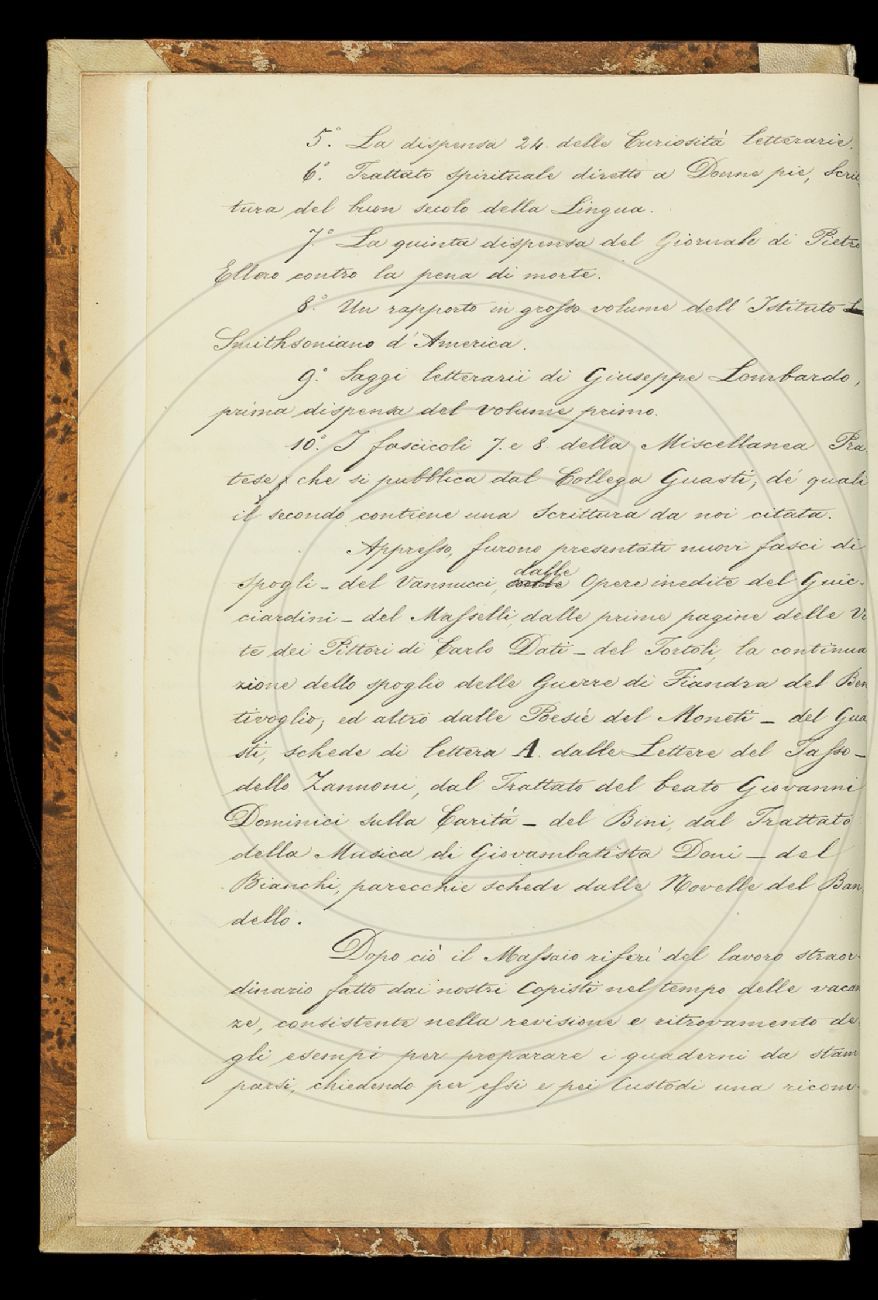 5.° La dispensa 24. delle Curiosità letterarie.
6.° Trattato spirituale diretto a Donne pie, Scrit-
tura del buon secolo della Lingua.
7.° La quinta dispensa del Giornale di Pietro
Ellero contro la pena di morte.
8.° Un rapporto in grosso volume dell' Istituto
Smithsoniano d'America.
9.° Saggi letterarii di Giuseppe Lombardo,
prima dispensa del volume primo.
10.° I fascicoli 7. e 8. della Miscellanea Pra
tese, che si pubblica dal Collega Guasti, de' quali
il secondo contiene una Scrittura da noi citata.
Appresso, furono presentati nuovi fasci di
spogli - del Vannucci, dalle Opere inedite del Guic-
ciardini - del Masselli dalle prime pagine delle Vi
te dei Pittori di Carlo Dati - del Tortoli, la continua
zione dello spoglio delle Guerre di Fiandra del Ben
tivoglio, ed altro dalle Poesie del Moneti - del Gua
sti, schede di lettera A. dalle Lettere del Tasso -
dello Zannoni, dal Trattato del beato Giovanni
Dominici sulla Carità - del Bini, dal Trattato
della Musica di Giovambatista Doni - del
Bianchi, parecchie schede dalle Novelle del Ban
dello.
Dopo ciò il Massaio riferì del lavoro straor-
dinario fatto dai nostri Copisti nel tempo delle vacan
ze, consistente nella revisione e ritrovamento de-
gli esempi per preparare i quaderni da stam
parsi, chiedendo per essi e pei Custodi una ricom-